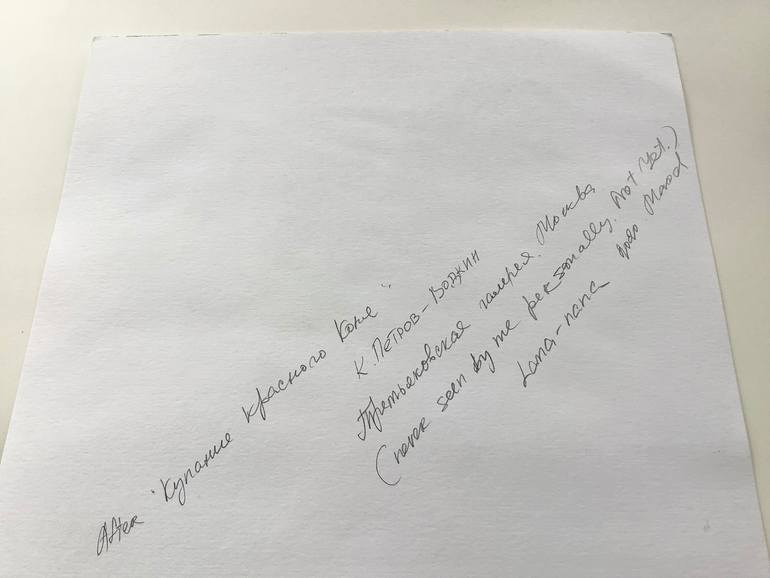 After "Купание красного Коня"
К. ПЕТРОВ-ВОДКИН
Третьяковская галерея. Москва
(never seen by me personally. Not Yet.)
Lana-nana